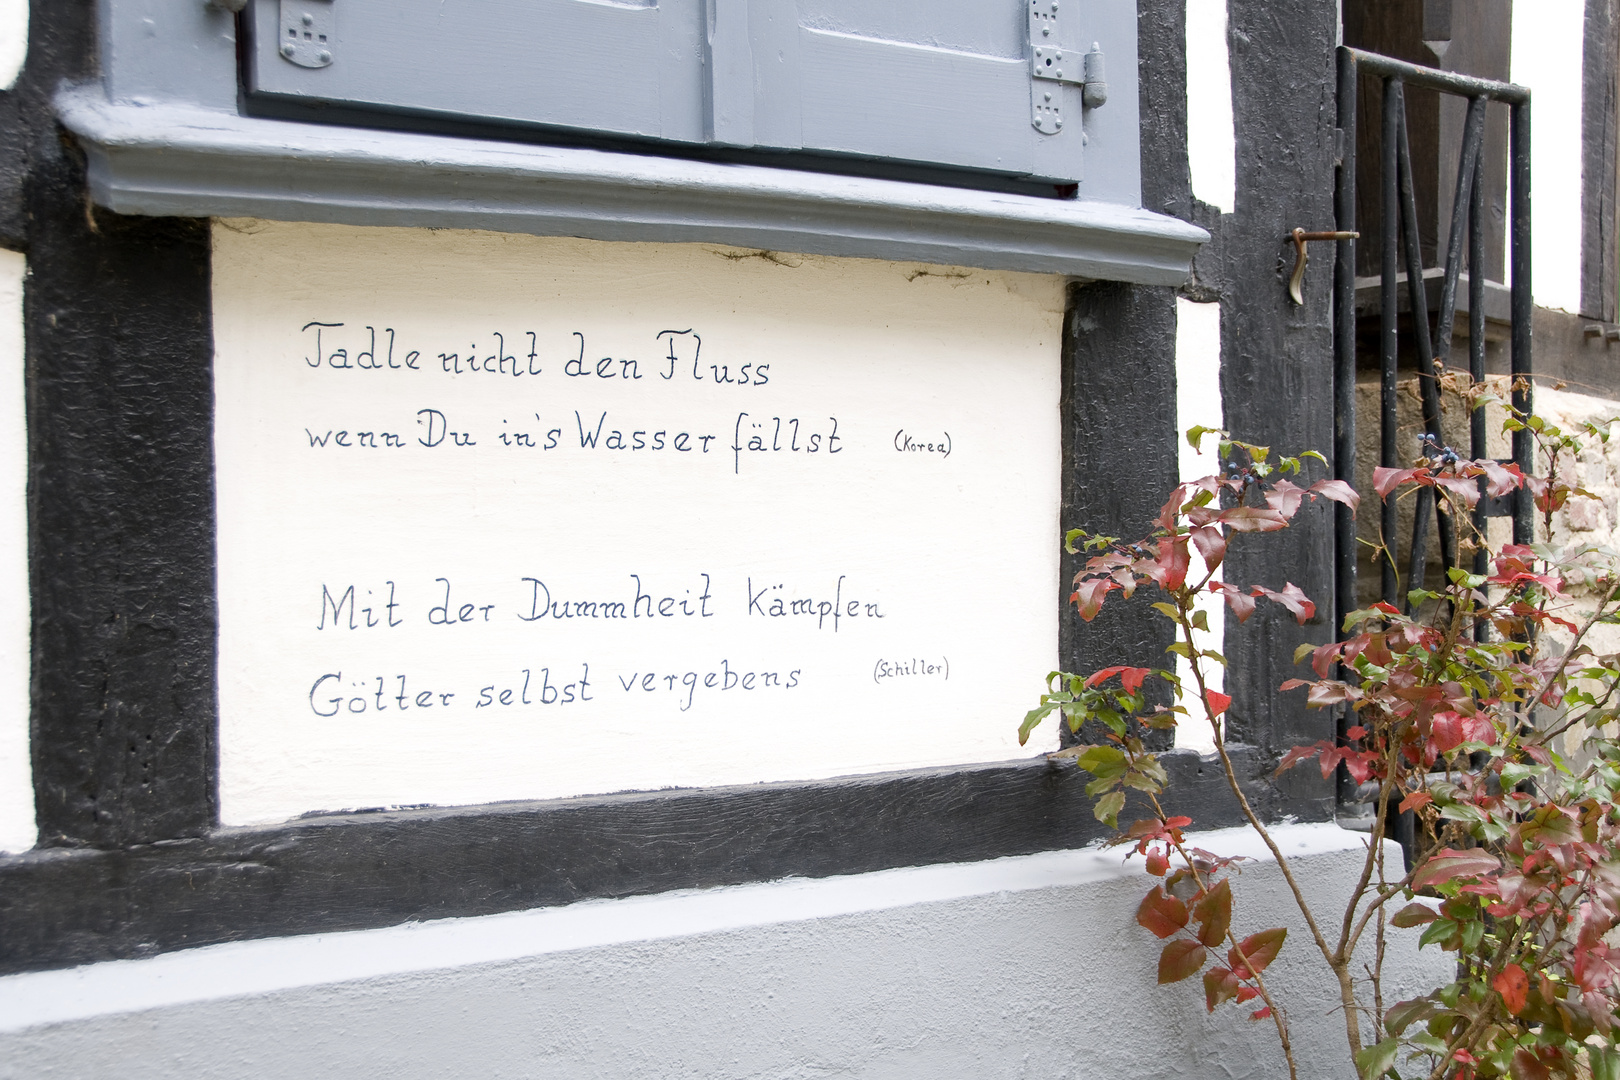 Tadle nicht den Fluss
wenn Du in's Wasser fällst (Korea)
Mit der Dummheit kämpfen
Götter selbst vergebens (Schiller)